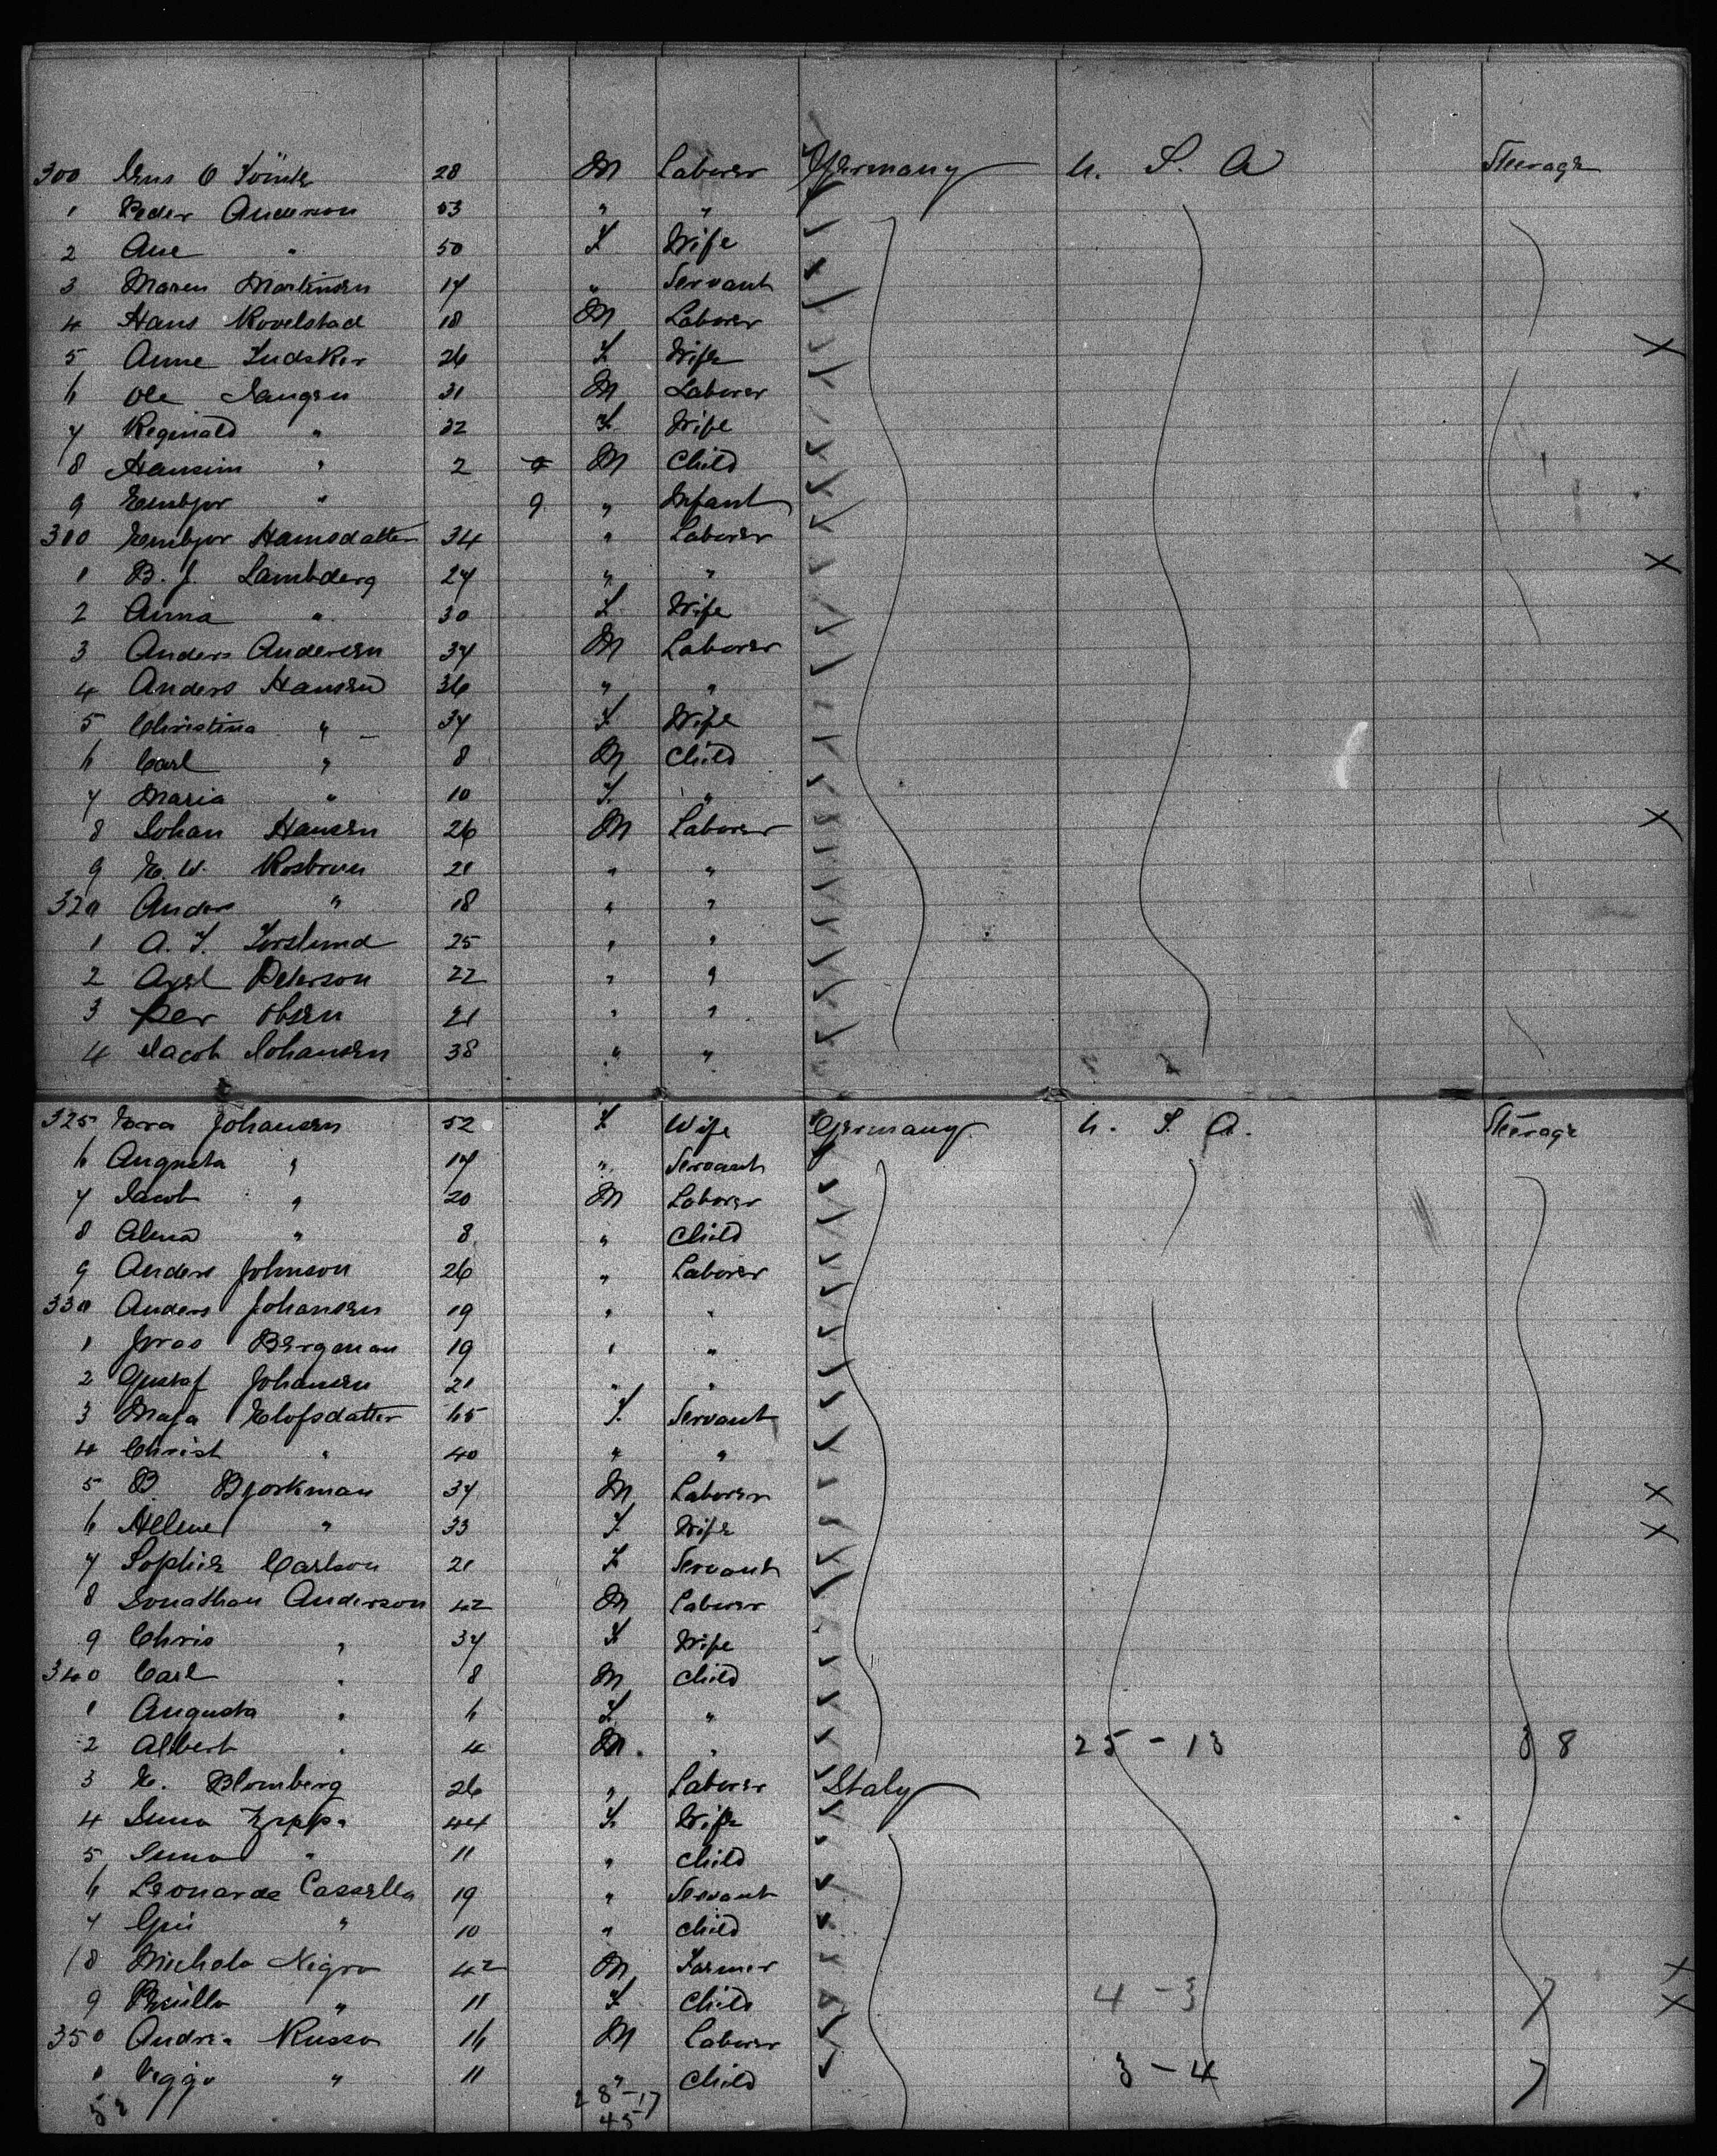 300 Jens O 28 M Laborer Germany U. S. A Steerage
1 Peder Anderson 53 " "
2 Ane " 50 F Wife
3 Maren Martinsen 17 " Servant
4 Hans Kovelstad 18 M Laborer
5 Anne 26 F Wife X
6 Ole Jangen 31 M Laborer
7 Reginald " 32 F Wife
8 Hansine " 2 M Child
9 Embjor " 9 " Infant
310 Embjor Hansdatter 34 " Laborer
1 B. J. Lambderg 27 " " X
2 Anna " 30 F Wife
3 Anders Andersen 37 M Laborer
4 Anders Hansen 36 " "
5 Christina " 37 F Wife
6 Carl " 8 M Child
7 Maria " 10 F "
8 Johan Hansen 26 M Laborer X
9 E. W. 21 " "
320 Anders " 18 " "
1 A. F. Forslund 25 " "
2 Axel Peterson 22 " "
3 Per Olsen 21 " "
4 Jacob Johansen 38 " "
325 Eva Johansen 52 F Wife Germany U. S. A. Steerage
6 Augusta " 17 " Servant
7 Jacob " 20 M Laborer
8 " 8 " Child
9 Anders Johnson 26 " Laborer
330 Anders Johansen 19 " "
1 Bergman 19 " "
2 Gustaf Johansen 21 " "
3 Maja Elofsdatter 65 F Servant
4 Christ " 40 " "
5 B Bjorkman 37 M Laborer X
6 Helene " 33 F Wife X
7 Sophie Carlson 21 F Servant
8 Jonathan Anderson 42 M Laborer
9 Chris " 37 F Wife
340 Carl " 8 M Child
1 Augusta " 6 F "
2 Albert " 4 M " 25 - 13 38
3 E. Blomberg 26 " Laborer Italy
4 44 F Wife
5 " 11 " Child
6 Leonarda Cassella 19 " Servant
7 " 10 " Child
8 Michele Nigro 42 M Farmer X
9 " 11 F Child 4 - 3 7 X
350 Andrea Russo 16 M Laborer
1 " 11 " Child 3 - 4 7
52 28-17
45